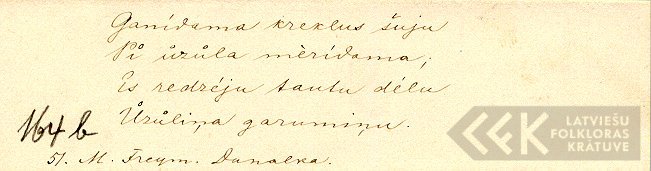 Ganídama kreklus šuju
Pi ůzůla mèrídama;
Es redzéju tautu délu
Ůzůliņa garumiņu.
164 b
51. M. Freym. Danalka.
LATVIEŠU
FOLKLORAS
KRĀTUVE